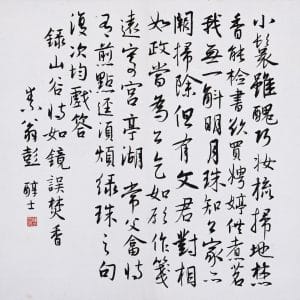 小鬟雖醜巧妝梳掃地焚
香能檢書欲買娉婷供煮茗
我無一斛明月珠知公家亦
闕掃除但有文君對相
如政當為公乞如願作箋
遠寄宮亭湖 常父畣詩
有煎點徑須煩綠珠之句
復次均戲答
錄山谷詩如鏡誤焚香
素翁彭醇士